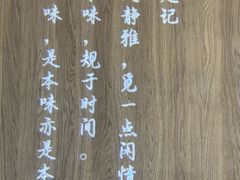 记
静雅，觅一点闲情
味，规于时间。
味，是本味亦是本